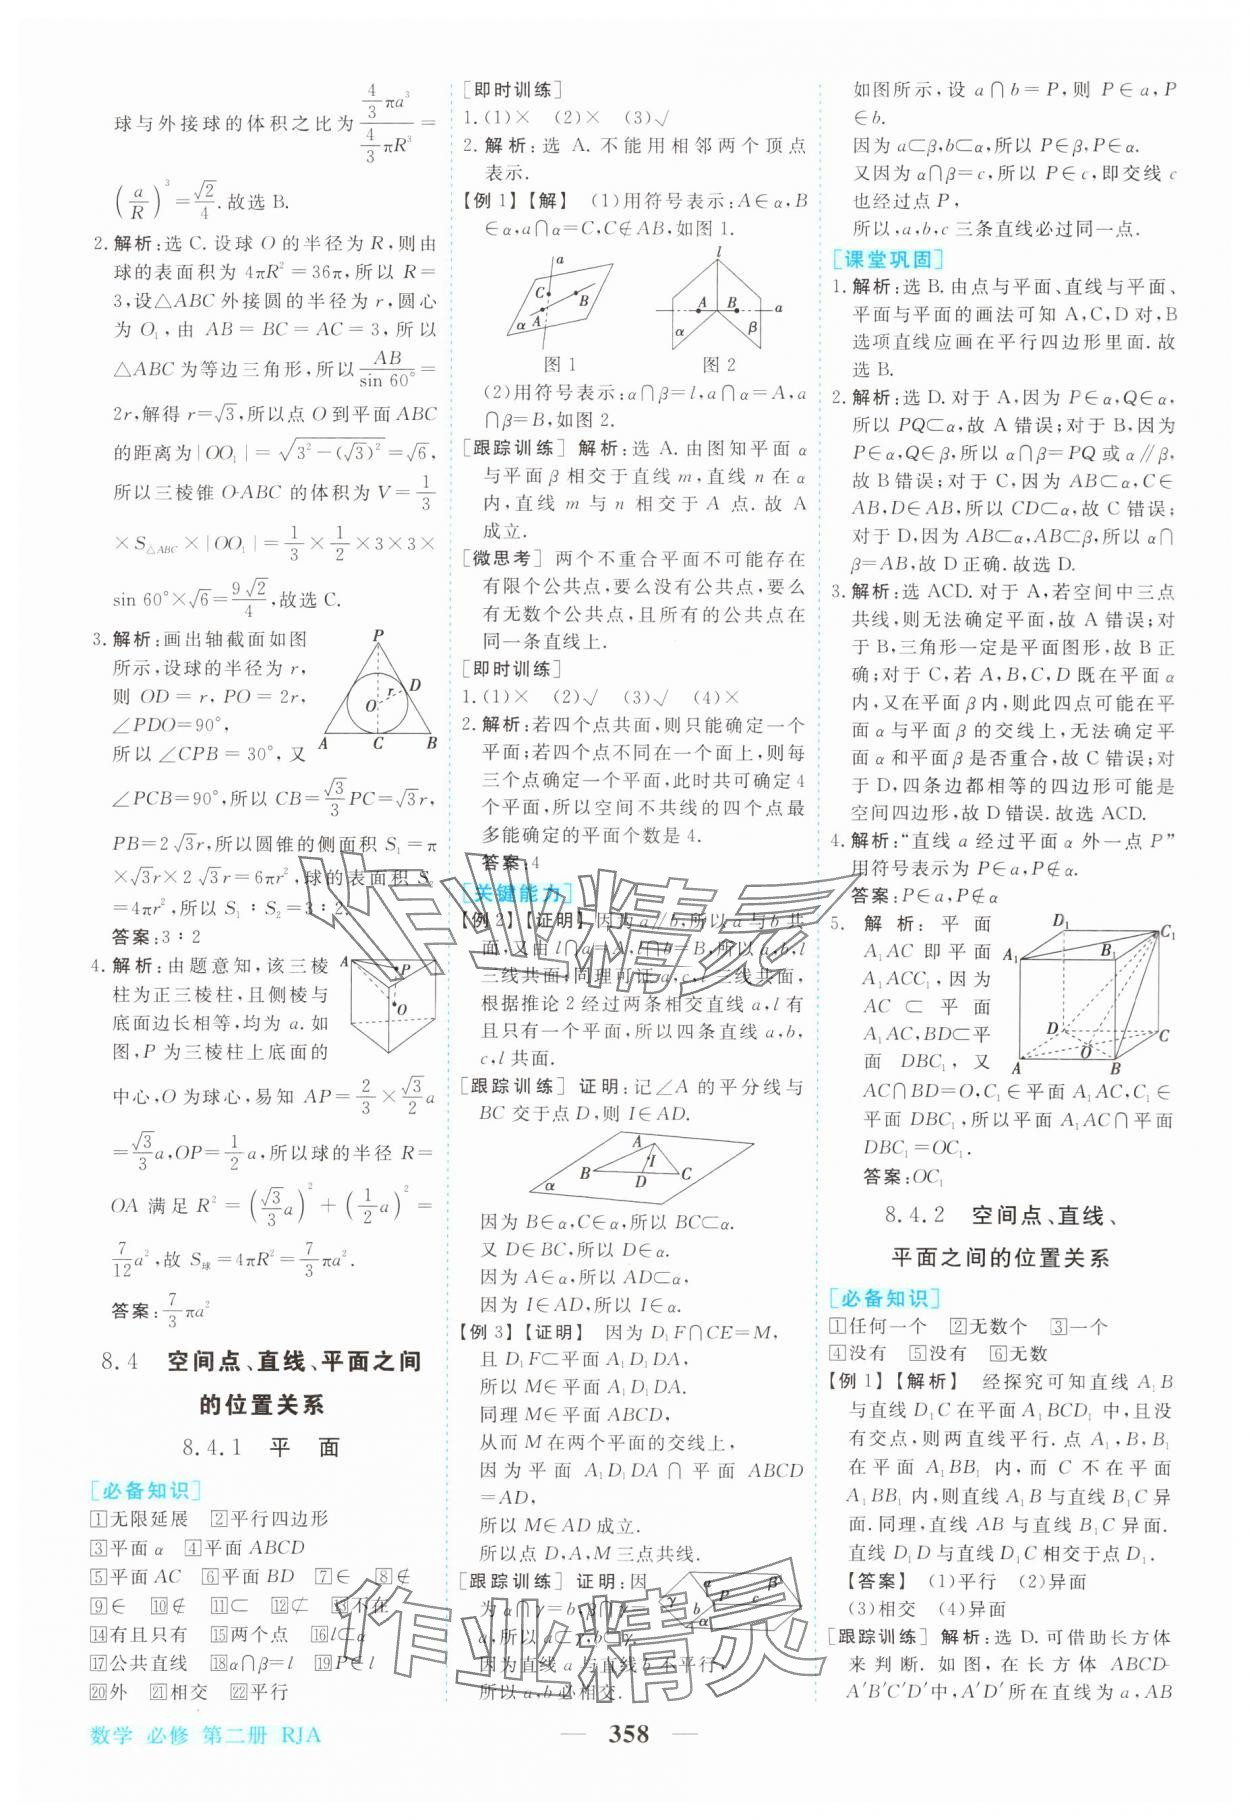 球与外接球的体积之比为 \frac{\frac{4}{3}πa^3}{\frac{4}{3}πR^3} =
(\frac{a}{R})^3=\frac{\sqrt{2}}{4}.故选 B.
2. 解析:选 C. 设球 O 的半径为 R,则由
球的表面积为 4πR²=36π,所以 R=
3,设△ABC 外接圆的半径为 r,圆心
为 O₁,由 AB=BC=AC=3,所以
△ABC 为等边三角形,所以\frac{AB}{sin 60°}=
2r,解得 r=√3,所以点 O 到平面 ABC
的距离为|OO₁|=\sqrt{3²-(√3)²}=√6,
所以三棱锥 O-ABC 的体积为 V=\frac{1}{3}
×S△ABC×|OO₁|=\frac{1}{3}×\frac{1}{2}×3×3×
sin 60°×√6=\frac{9√2}{4},故选 C.
3. 解析:画出轴截面如图
所示,设球的半径为 r,
则 OD=r,PO=2r,
∠PDO=90°,
所以∠CPB=30°,又
P
r
D
O
A C B
∠PCB=90°,所以 CB=\frac{√3}{3}PC=√3r,
PB=2√3r,所以圆锥的侧面积 S₁=π
×√3r×2√3r=6πr²,球的表面积 S₂
=4πr²,所以 S₁∶S₂=3∶2.
答案:3∶2
4. 解析:由题意知,该三棱
柱为正三棱柱,且侧棱与
底面边长相等,均为 a.如
图,P 为三棱柱上底面的
A
P
O
中心,O 为球心,易知 AP=\frac{2}{3}×\frac{√3}{2}a
=\frac{√3}{3}a,OP=\frac{1}{2}a,所以球的半径 R=
OA 满足 R²=(\frac{√3}{3}a)²+(\frac{1}{2}a)²=
\frac{7}{12}a²,故 S球=4πR²=\frac{7}{3}πa².
答案:\frac{7}{3}πa²
8.4 空间点、直线、平面之间
的位置关系
8.4.1 平 面
[必备知识]
1无限延展 2平行四边形
3平面 α 4平面 ABCD
5平面 AC 6平面 BD 7∈ 8∉
9∈ 10∉ 11⊂ 12⊂ 13不在
14有且只有 15两个点 16l⊂α
17公共直线 18α∩β=l 19P∈l
20外 21相交 22平行
[即时训练]
1. (1)× (2)× (3)√
2. 解析:选 A. 不能用相邻两个顶点
表示.
【例 1】【解】 (1)用符号表示:A∈α,B
∈α,a∩α=C,C∉AB,如图 1.
a
C
B
A
α
图 1
l
A B a
α β
图 2
(2)用符号表示:α∩β=l,a∩α=A,a
∩β=B,如图 2.
[跟踪训练] 解析:选 A. 由图知平面 α
与平面 β 相交于直线 m,直线 n 在 α
内,直线 m 与 n 相交于 A 点. 故 A
成立.
[微思考] 两个不重合平面不可能存在
有限个公共点,要么没有公共点,要么
有无数个公共点,且所有的公共点在
同一条直线上.
[即时训练]
1. (1)× (2)√ (3)√ (4)×
2. 解析:若四个点共面,则只能确定一个
平面;若四个点不同在一个面上,则每
三个点确定一个平面,此时共可确定 4
个平面,所以空间不共线的四个点最
多能确定的平面个数是 4.
答案:4
[关键能力]
【例 2】【证明】 因为 a∥b,所以 a 与 b 共
面,又由 l∩a=A,l∩b=B,所以 a,b,l
三线共面;同理可证 a,c,l 三线共面,
根据推论 2 经过两条相交直线 a,l 有
且只有一个平面,所以四条直线 a,b,
c,l 共面.
[跟踪训练] 证明:记∠A 的平分线与
BC 交于点 D,则 I∈AD.
A
I
B D C
α
因为 B∈α,C∈α,所以 BC⊂α.
又 D∈BC,所以 D∈α.
因为 A∈α,所以 AD⊂α,
因为 I∈AD,所以 I∈α.
【例 3】【证明】 因为 D₁F∩CE=M,
且 D₁F⊂平面 A₁D₁DA,
所以 M∈平面 A₁D₁DA.
同理 M∈平面 ABCD,
从而 M 在两个平面的交线上,
因为平面 A₁D₁DA∩平面 ABCD
=AD,
所以 M∈AD 成立.
所以点 D,A,M 三点共线.
[跟踪训练] 证明:因
为 α∩γ=b,β∩γ=
a,所以 a⊂γ,b⊂γ.
α β
P c
γ b a
因为直线 a 与直线 b 不平行,
所以 a,b 必相交.
如图所示,设 a∩b=P,则 P∈a,P
∈b.
因为 a⊂β,b⊂α,所以 P∈β,P∈α.
又因为 α∩β=c,所以 P∈c,即交线 c
也经过点 P,
所以,a,b,c 三条直线必过同一点.
[课堂巩固]
1. 解析:选 B. 由点与平面、直线与平面、
平面与平面的画法可知 A,C,D 对,B
选项直线应画在平行四边形里面.故
选 B.
2. 解析:选 D. 对于 A,因为 P∈α,Q∈α,
所以 PQ⊂α,故 A 错误;对于 B,因为
P∈α,Q∈β,所以 α∩β=PQ 或 α∥β,
故 B 错误;对于 C,因为 AB⊂α,C∈
AB,D∈AB,所以 CD⊂α,故 C 错误;
对于 D,因为 AB⊂α,AB⊂β,所以 α∩
β=AB,故 D 正确.故选 D.
3. 解析:选 ACD. 对于 A,若空间中三点
共线,则无法确定平面,故 A 错误;对
于 B,三角形一定是平面图形,故 B 正
确;对于 C,若 A,B,C,D 既在平面 α
内,又在平面 β 内,则此四点可能在平
面 α 与平面 β 的交线上,无法确定平
面 α 和平面 β 是否重合,故 C 错误;对
于 D,四条边都相等的四边形可能是
空间四边形,故 D 错误.故选 ACD.
4. 解析:“直线 a 经过平面 α 外一点 P”
用符号表示为 P∈a,P∉α.
答案:P∈a,P∉α
5. 解析:平面
A₁AC 即平面
A₁ACC₁,因为
AC⊂平面
A₁AC,BD⊂平
面 DBC₁,又
D₁ C₁
A₁ B₁
D C
O
A B
AC∩BD=O,C₁∈平面 A₁AC,C₁∈
平面 DBC₁,所以平面 A₁AC∩平面
DBC₁=OC₁.
答案:OC₁
8.4.2 空间点、直线、
平面之间的位置关系
[必备知识]
1任何一个 2无数个 3一个
4没有 5没有 6无数
【例 1】【解析】 经探究可知直线 A₁B
与直线 D₁C 在平面 A₁BCD₁ 中,且没
有交点,则两直线平行. 点 A₁,B,B₁
在平面 A₁BB₁ 内,而 C 不在平面
A₁BB₁ 内,则直线 A₁B 与直线 B₁C 异
面.同理,直线 AB 与直线 B₁C 异面.
直线 D₁D 与直线 D₁C 相交于点 D₁.
【答案】 (1)平行 (2)异面
(3)相交 (4)异面
[跟踪训练] 解析:选 D. 可借助长方体
来判断. 如图,在长方体 ABCD-
A′B′C′D′中,A′D′所在直线为 a,AB
作业精灵
作业精灵
数学 必修 第二册 RJA
358